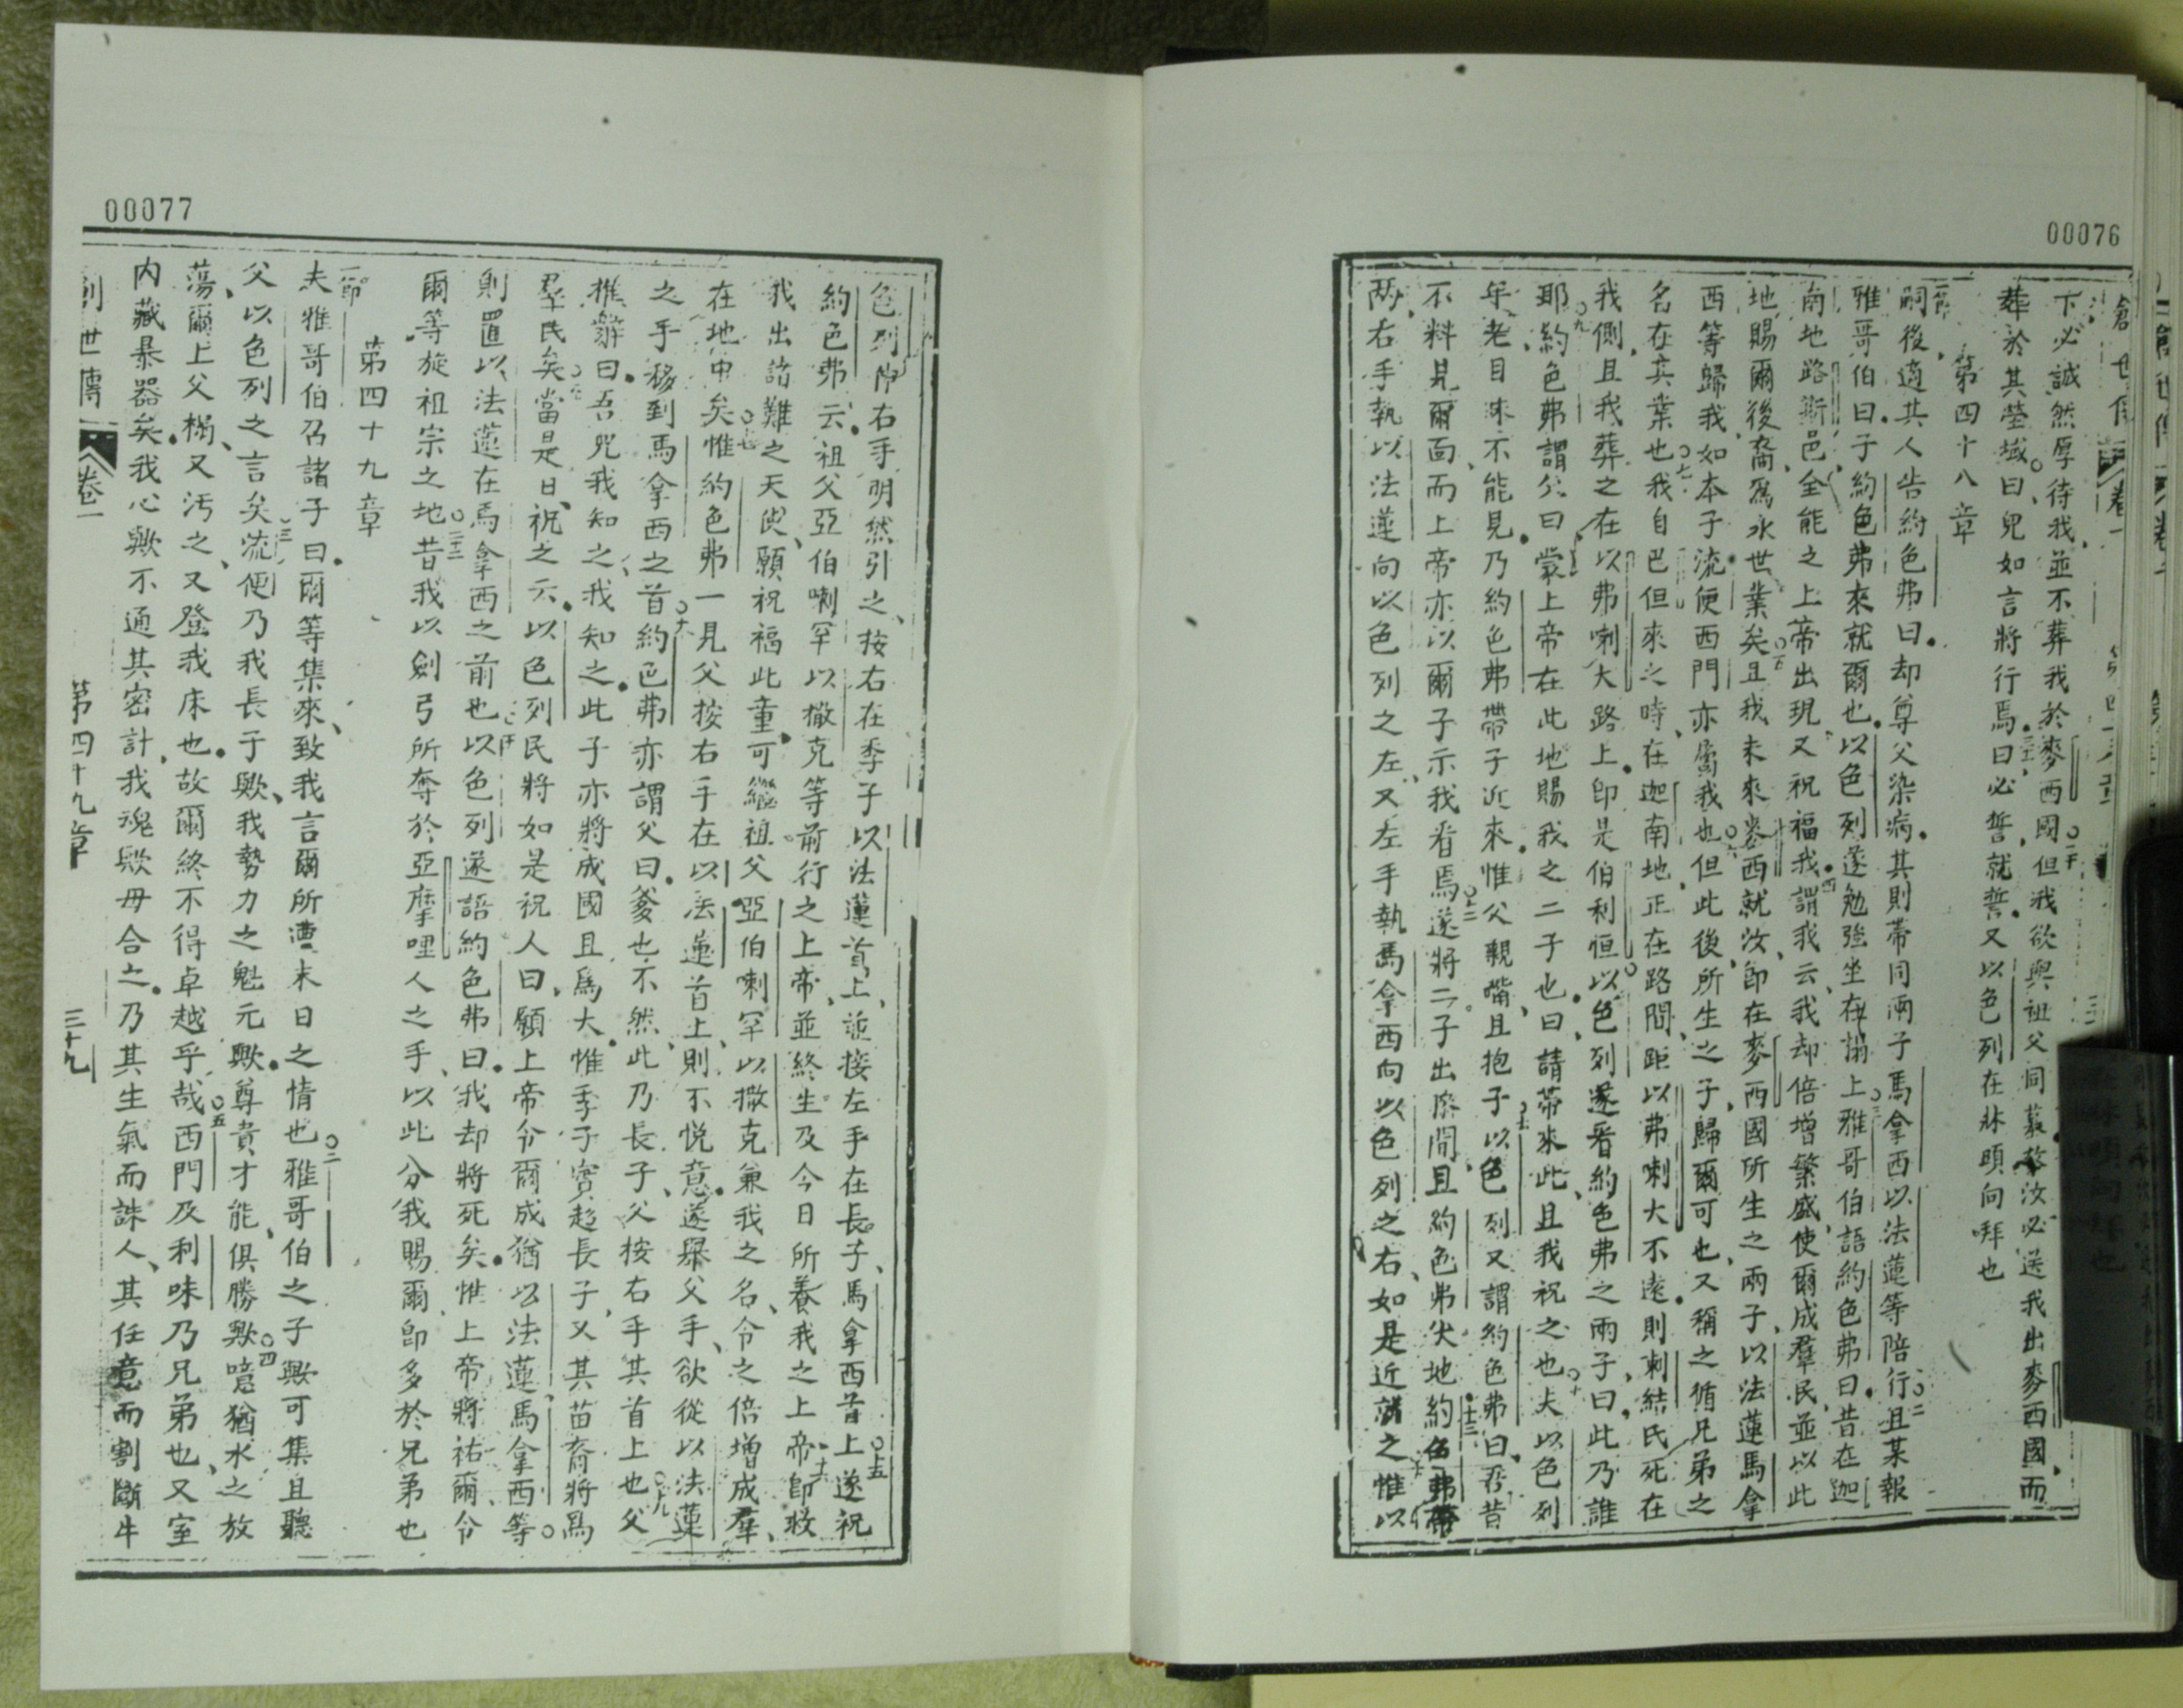 00076
下必誠然厚待我並不葬我於麥西國但我欲與祖父同墓故汝必送我出麥西國而
葬於其塋域曰兒如言將行焉曰必誓就誓又以色列在牀頭向拜也
第四十八章
嗣後適其人告約色弗曰却尊父染病其則帶同兩子馬拿西以法蓮等陪行且某報
雅哥伯曰子約色弗來就爾也以色列遂勉強坐在榻上雅哥伯語約色弗曰昔在迦
南地路斯邑全能之上帝出現又祝福我謂我云我却倍增繁盛使爾成羣民並以此
地賜爾後裔爲永世業矣且我未來麥西就汝即在麥西國所生之兩子以法蓮馬拿
西等歸我如本子流便西門亦屬我也但此後所生之子歸爾可也又稱之循兄弟之
名在其業也我自巴但來之時在迦南地正在路間距以弗喇大不遠則剌結氏死在
我側且我葬之在以弗喇大路上即是伯利恒以色列遂看約色弗之兩子曰此乃誰
耶約色弗謂父曰蒙上帝在此地賜我之二子也曰請帶來此且我祝之也夫以色列
年老目沬不能見乃約色弗帶子近來惟父親嘴且抱子以色列又謂約色弗曰吾昔
不料見爾面而上帝亦以爾子示我看焉遂將二子出膝間且約色弗伏地約色弗帶
兩右手執以法蓮向以色列之左又左手執馬拿西向以色列之右如是近就之惟以
00077
色列伸右手明然引之按右在季子以法蓮首上並接左手在長子馬拿西首上遂祝
約色弗云祖父亞伯喇罕以撒克等前行之上帝並終生及今日所養我之上帝即救
我出諸難之天使願祝福此童可繼祖父亞伯喇罕以撒克兼我之名令之倍增成羣
在地中矣惟約色弗一見父按右手在以法蓮首上則不悦意遂舉父手欲從以法蓮
之手移到馬拿西之首約色弗亦謂父曰爹也不然此乃長子父按右手其首上也父
推辭曰吾兒我知之我知之此子亦將成國且爲大惟季子實超長子又其苗裔將爲
羣民矣當是日祝之云以色列民將如是祝人曰願上帝令爾成猶以法蓮馬拿西等
則置以法蓮在馬拿西之前也以色列遂語約色弗曰我却將死矣惟上帝將祐爾令
爾等旋祖宗之地昔我以劍弓所奪於亞摩哩人之手以此分我賜爾即多於兄弟也
第四十九章
夫雅哥伯召諸子曰爾等集來致我言爾所遭末日之情也雅哥伯之子歟可集且聽
父以色列之言矣流便乃我長子歟我勢力之魁元歟尊貴才能俱勝歟噫猶水之放
蕩爾上父榻又汚之又登我床也故爾終不得卓越乎哉西門及利味乃兄弟也又室
内藏暴器矣我心歟不通其密計我魂歟毋合之乃其生氣而誅人其任意而割斷牛
創世傳 卷一 第四十九章 三十九